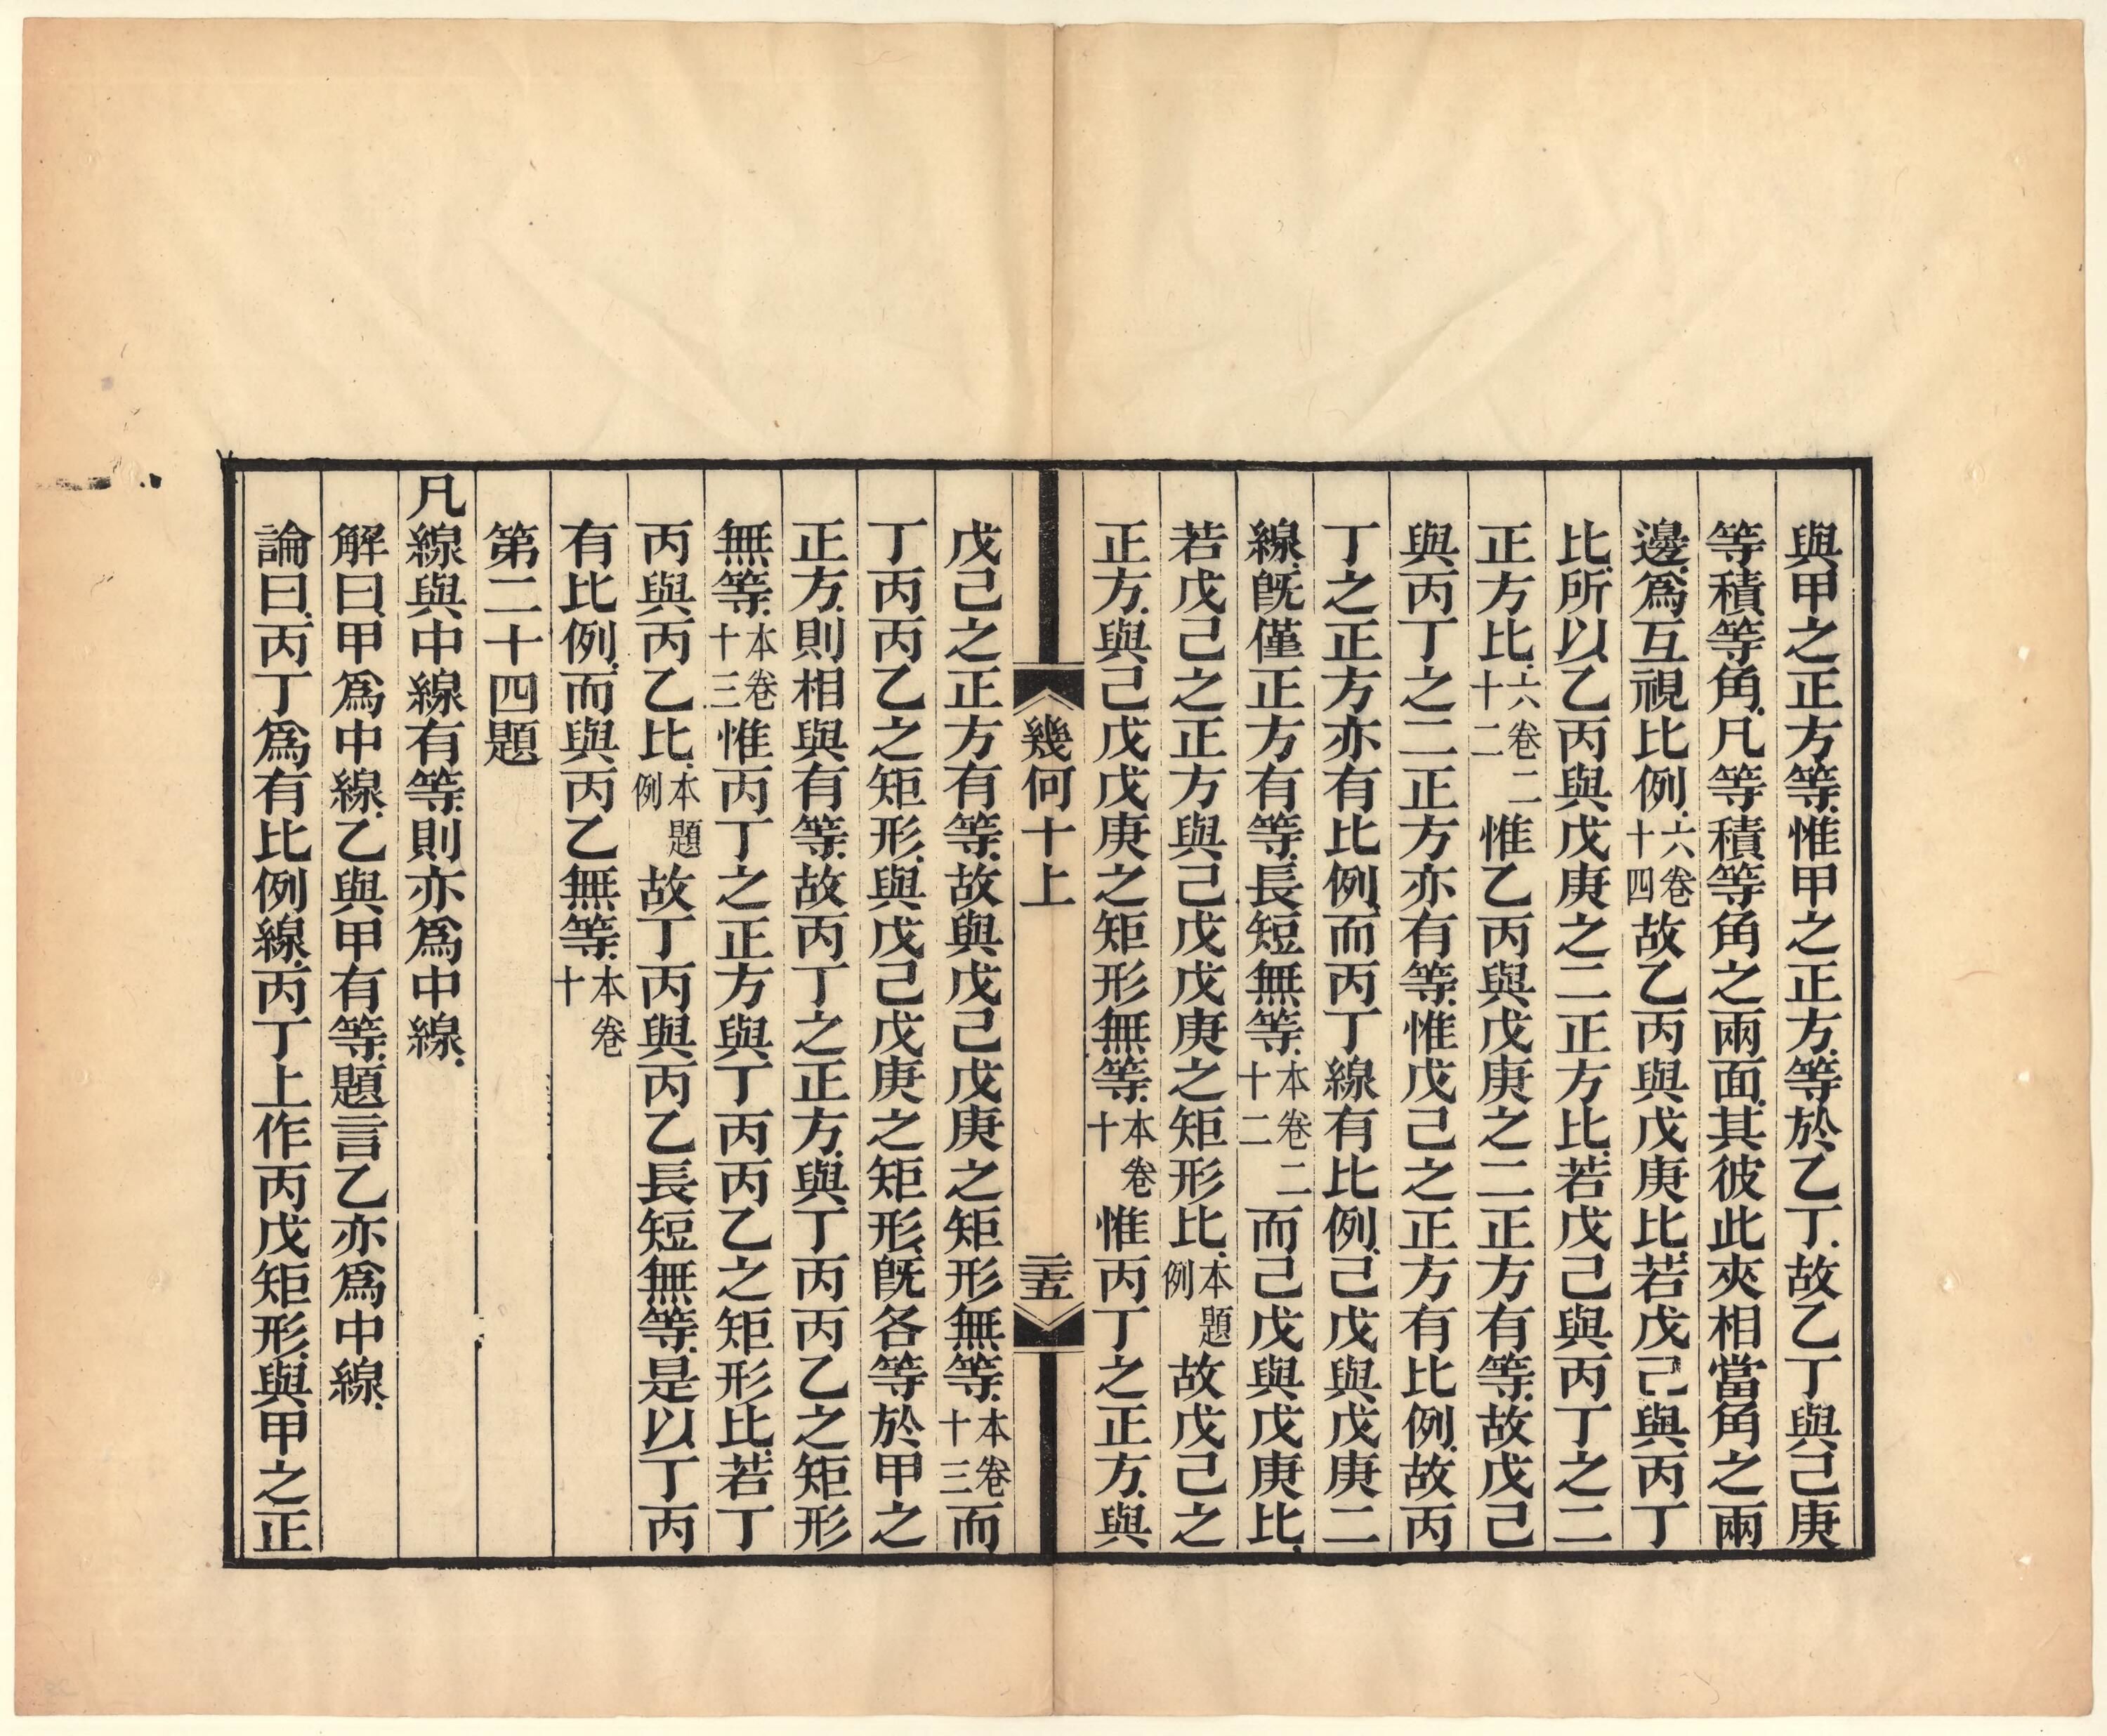 與甲之正方等惟甲之正方等於乙丁故乙丁與己庚
等積等角凡等積等角之兩面其彼此夾相當角之兩
邊爲互視比例六卷十四故乙丙與戊庚比若戊己與丙丁
比所以乙丙與戊庚之二正方比若戊己與丙丁之二
正方比六卷二十二惟乙丙與戊庚之二正方有等故戊己
與丙丁之二正方亦有等惟戊己之正方有比例故丙
丁之正方亦有比例而丙丁線有比例己戊與戊庚二
線旣僅正方有等長短無等本卷二十二而己戊與戊庚比
若戊己之正方與己戊戊庚之矩形比本題例故戊己之
正方與己戊戊庚之矩形無等本卷十惟丙丁之正方與
幾何十上
二十五
戊己之正方有等故與戊己戊庚之矩形無等本卷十三而
丁丙丙乙之矩形與戊己戊庚之矩形旣各等於甲之
正方則相與有等故丙丁之正方與丁丙丙乙之矩形
無等本卷十三惟丙丁之正方與丁丙丙乙之矩形比若丁
丙與丙乙比本題例故丁丙與丙乙長短無等是以丁丙
有比例而與丙乙無等本卷十
第二十四題
凡線與中線有等則亦爲中線
解曰甲爲中線乙與甲有等題言乙亦爲中線
論曰丙丁爲有比例線丙丁上作丙戊矩形與甲之正